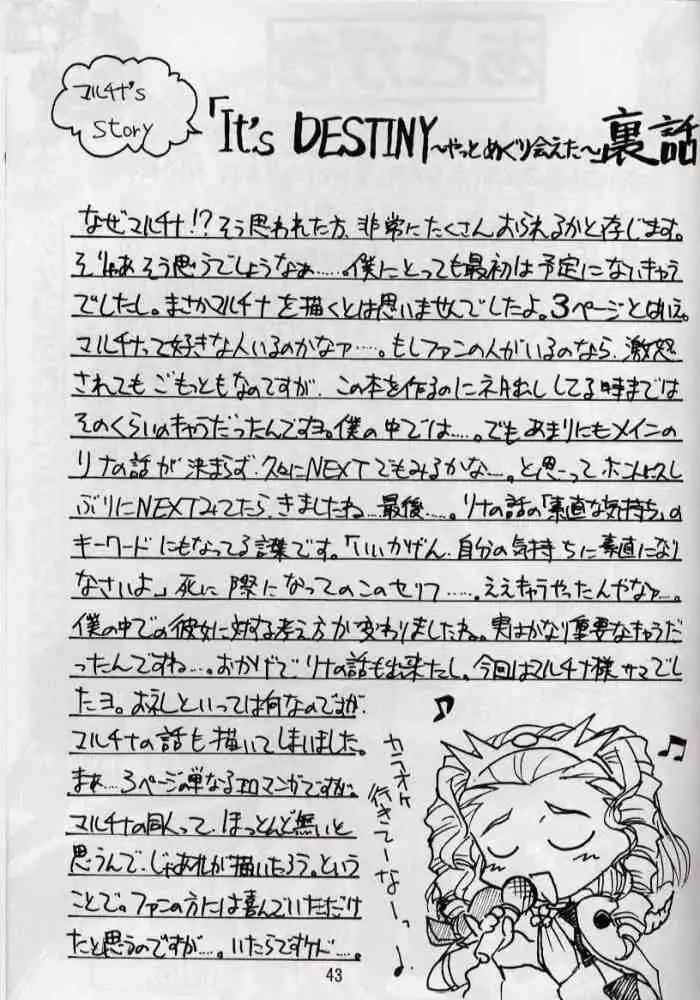 マルチナ's
Story
「It's DESTINY ～やっとめぐり会えた～」裏話
なぜマルチナ!?そう思われた方、非常にたくさんおられるかと存じます。
そりゃあそう思うでしょうなぁ……。僕にとっても最初は予定にないきゃら
でしたし。まさかマルチナを描くとは思いませんでしたよ。3ページとはいえ。
マルチナって好きな人いるのかなァ……。もしファンの人がいるのなら、激怒
されてもごもっともなのですが、この本を作るのにネタ出ししてる時までは
そのくらいのきゃらだったんですヨ。僕の中では……。でもあまりにもメインの
リナの話が決まらず、久々にNEXTでもみるかな……。と思ってホントに久し
ぶりにNEXTみてたら、きましたね……最後……。リナの話の「素直な気持ち」の
キーワードにもなってる言葉です。「いいかげん、自分の気持ちに素直になり
なさいよ」死に際になってのこのセリフ……。ええキャラやったんやなァ…。
僕の中での彼女に対する考え方が変わりましたね。実はかなり重要なキャラだ
ったんですね…。おかげでリナの話も出来たし。今回はマルチナ様サマでし
たヨ。お礼といっては何なのですが、
マルチナの話も描いてしまいました。
まぁ…3ページの単なるエロマンガですが。
マルチナの同人って、ほっとんど無いと
思うんで、じゃあオレが描いたろう。という
ことで。ファンの方には喜んでいただけ
たと思うのですが……。いたらですケド…。
カラオケ
行きてーなーっ
43